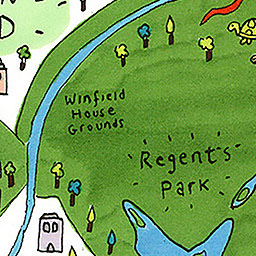 Winfield
House
Grounds
Regent's
Park